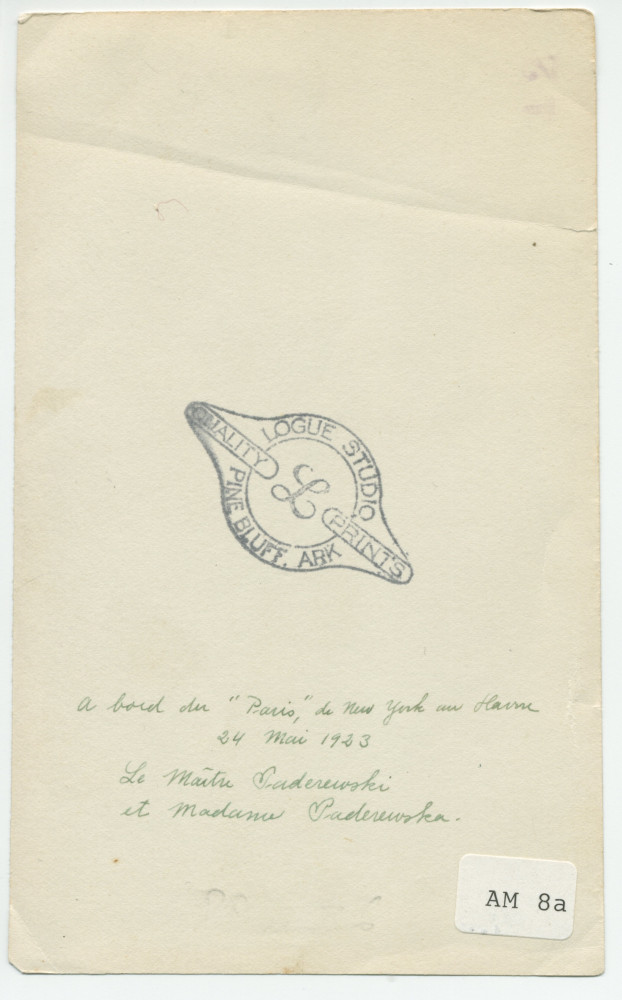 QUALITY
LOGUE STUDIO
L
PRINTS
PINE BLUFF, ARK
A bord du "Paris," de New York au Havre
24 Mai 1923
Le Maître Paderewski
et Madame Paderewska.
AM 8a